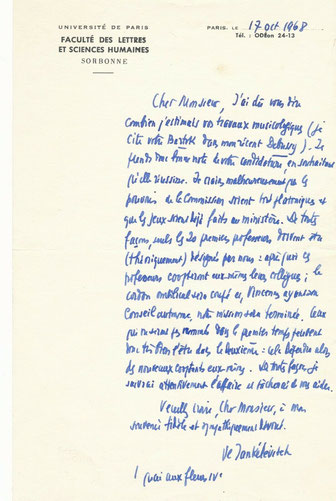 UNIVERSITÉ DE PARIS
FACULTÉ DES LETTRES
ET SCIENCES HUMAINES
SORBONNE
PARIS, LE 17 oct 1968
Tél. : ODÉon 24-13
Cher Monsieur, J'ai dû vous dire
combien j'estimais vos travaux musicologiques (je
cite votre Bartók dans mon récent Debussy). Je
prends donc bonne note de votre candidature, en souhaitant
qu'elle réussisse. Je crains malheureusement que les
pouvoirs de la Commission soient tout platoniques et
que les jeux soient déjà faits au ministère. De toute
façon, seuls les 20 premiers professeurs doivent être
(théoriquement) désignés par nous : après quoi les
professeurs coopteront eux-mêmes leurs collègues ; le
cordon ombilical sera coupé et, Vincennes ayant son
Conseil autonome, notre mission sera terminée. Ceux
qui ne seront pas nommés dans le premier temps peuvent
donc très bien l'être dans le deuxième : cela dépendra alors
de nouveaux cooptants eux-mêmes. De toute façon je
suivrai attentivement l'affaire et tâcherai de vous aider.
Veuillez croire, Cher Monsieur, à mon
souvenir fidèle et sympathiquement dévoué.
Vl Jankélévitch
1 quai aux fleurs IVe